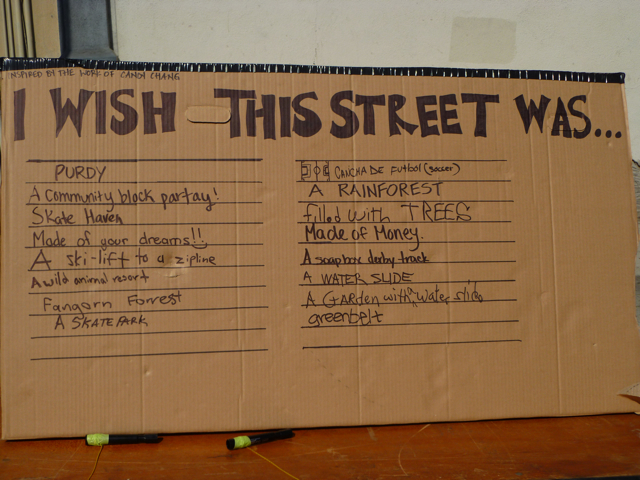 INSPIRED BY THE WORK OF CANDY CHANG
I WISH THIS STREET WAS...
PURDY
A Community block partay!
Skate Haven
Made of your dreams!!
A ski-lift to a zipline
A wild animal resort
Fangorn Forrest
A SKATEPARK
CANCHA DE futbol (soccer)
A RAINFOREST
filled with TREES
Made of Money.
A soap box derby track
A WATER SLIDE
A GARDEN with a water slide
greenbelt